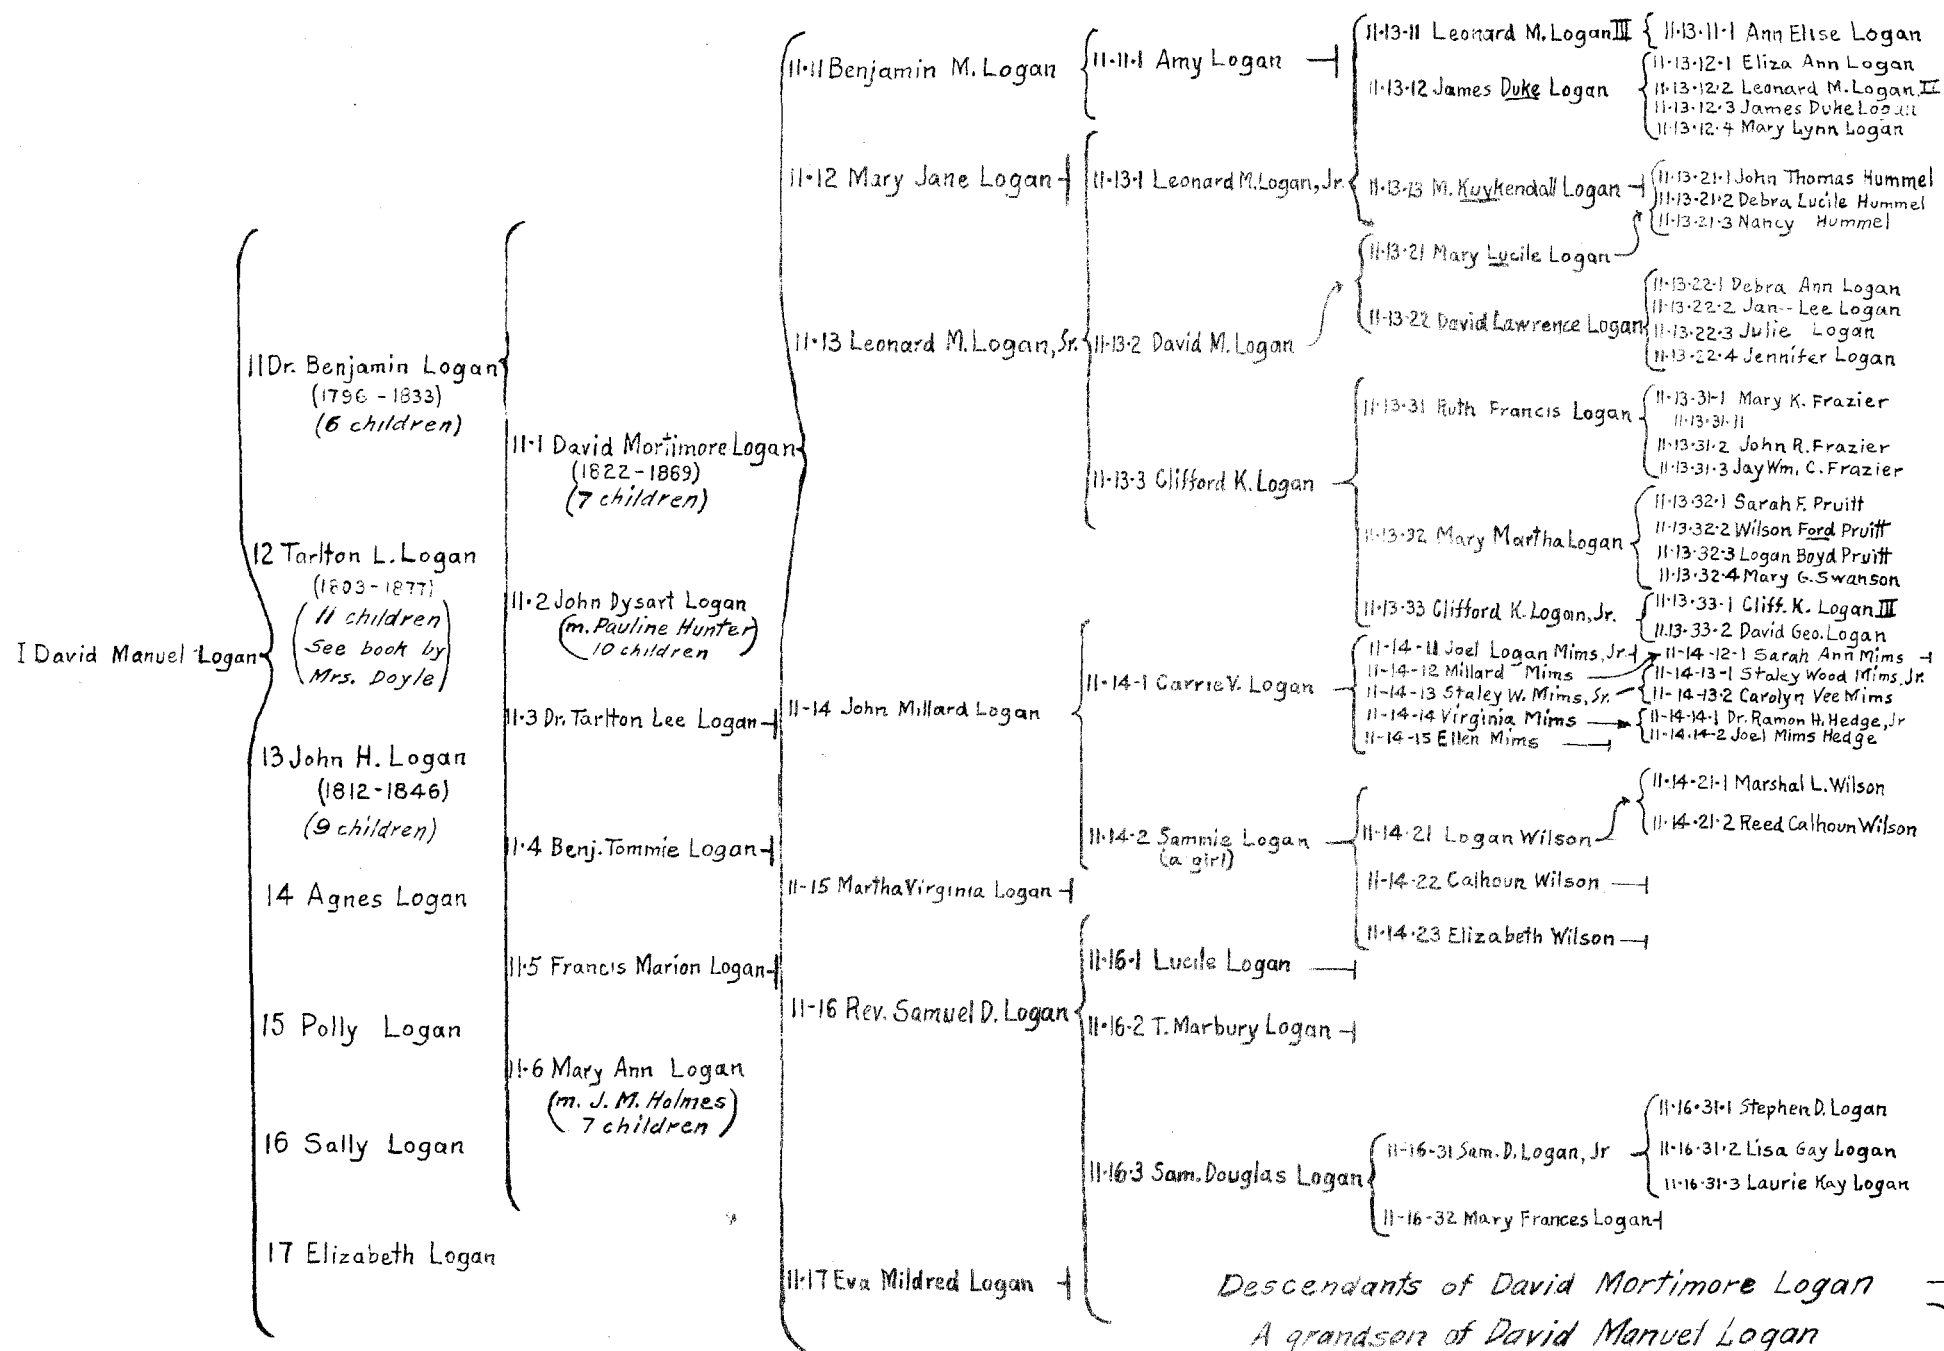 I David Manuel Logan
11 Dr. Benjamin Logan
(1796 - 1833)
(6 children)
12 Tarlton L. Logan
(1803 - 1877)
(11 children
See book by
Mrs. Doyle)
13 John H. Logan
(1812 - 1846)
(9 children)
14 Agnes Logan
15 Polly Logan
16 Sally Logan
17 Elizabeth Logan
11·1 David Mortimore Logan
(1822 - 1869)
(7 children)
11·2 John Dysart Logan
(m. Pauline Hunter)
10 children
11·3 Dr. Tarlton Lee Logan
11·4 Benj. Tommie Logan
11·5 Francis Marion Logan
11·6 Mary Ann Logan
(m. J. M. Holmes)
7 children)
11·11 Benjamin M. Logan
11·12 Mary Jane Logan
11·13 Leonard M. Logan, Sr.
11-14 John Millard Logan
11-15 Martha Virginia Logan
11-16 Rev. Samuel D. Logan
11·17 Eva Mildred Logan
11·11·1 Amy Logan
11·13·1 Leonard M. Logan, Jr.
11·13·2 David M. Logan
11·13·3 Clifford K. Logan
11-14-1 Carrie V. Logan
11·14·2 Sammie Logan
(a girl)
11·16·1 Lucile Logan
11·16·2 T. Marbury Logan
11·16·3 Sam. Douglas Logan
11·13·11 Leonard M. Logan III
11·13·12 James Duke Logan
11·13·13 M. Kuykendall Logan
11·13·21 Mary Lucile Logan
11·13·22 David Lawrence Logan
11·13·31 Ruth Francis Logan
11·13·32 Mary Martha Logan
11·13·33 Clifford K. Logan, Jr.
11-14-11 Joel Logan Mims, Jr.
11-14-12 Millard Mims
11-14-13 Staley W. Mims, Sr.
11-14-14 Virginia Mims
11-14-15 Ellen Mims
11-14-21 Logan Wilson
11-14-22 Calhoun Wilson
11·14·23 Elizabeth Wilson
11-16-31 Sam. D. Logan, Jr
11-16-32 Mary Frances Logan
11·13·11·1 Ann Elise Logan
11·13·12·1 Eliza Ann Logan
11·13·12·2 Leonard M. Logan, IV
11·13·12·3 James Duke Logan
11·13·12·4 Mary Lynn Logan
11·13·21·1 John Thomas Hummel
11·13·21·2 Debra Lucile Hummel
11·13·21·3 Nancy Hummel
11·13·22·1 Debra Ann Logan
11·13·22·2 Jan-- Lee Logan
11·13·22·3 Julie Logan
11·13·22·4 Jennifer Logan
11·13·31·1 Mary K. Frazier
11·13·31·11
11·13·31·2 John R. Frazier
11·13·31·3 Jay Wm. C. Frazier
11·13·32·1 Sarah F. Pruitt
11·13·32·2 Wilson Ford Pruitt
11·13·32·3 Logan Boyd Pruitt
11·13·32·4 Mary G. Swanson
11·13·33·1 Cliff. K. Logan III
11·13·33·2 David Geo. Logan
11-14-12-1 Sarah Ann Mims
11-14-13-1 Staley Wood Mims, Jr.
11-14-13·2 Carolyn Vee Mims
11-14-14·1 Dr. Ramon H. Hedge, Jr
11-14·14-2 Joel Mims Hedge
11·14·21·1 Marshal L. Wilson
11·14·21·2 Reed Calhoun Wilson
11·16·31·1 Stephen D. Logan
11·16·31·2 Lisa Gay Logan
11·16·31·3 Laurie Kay Logan
Descendants of David Mortimore Logan
A grandson of David Manuel Logan